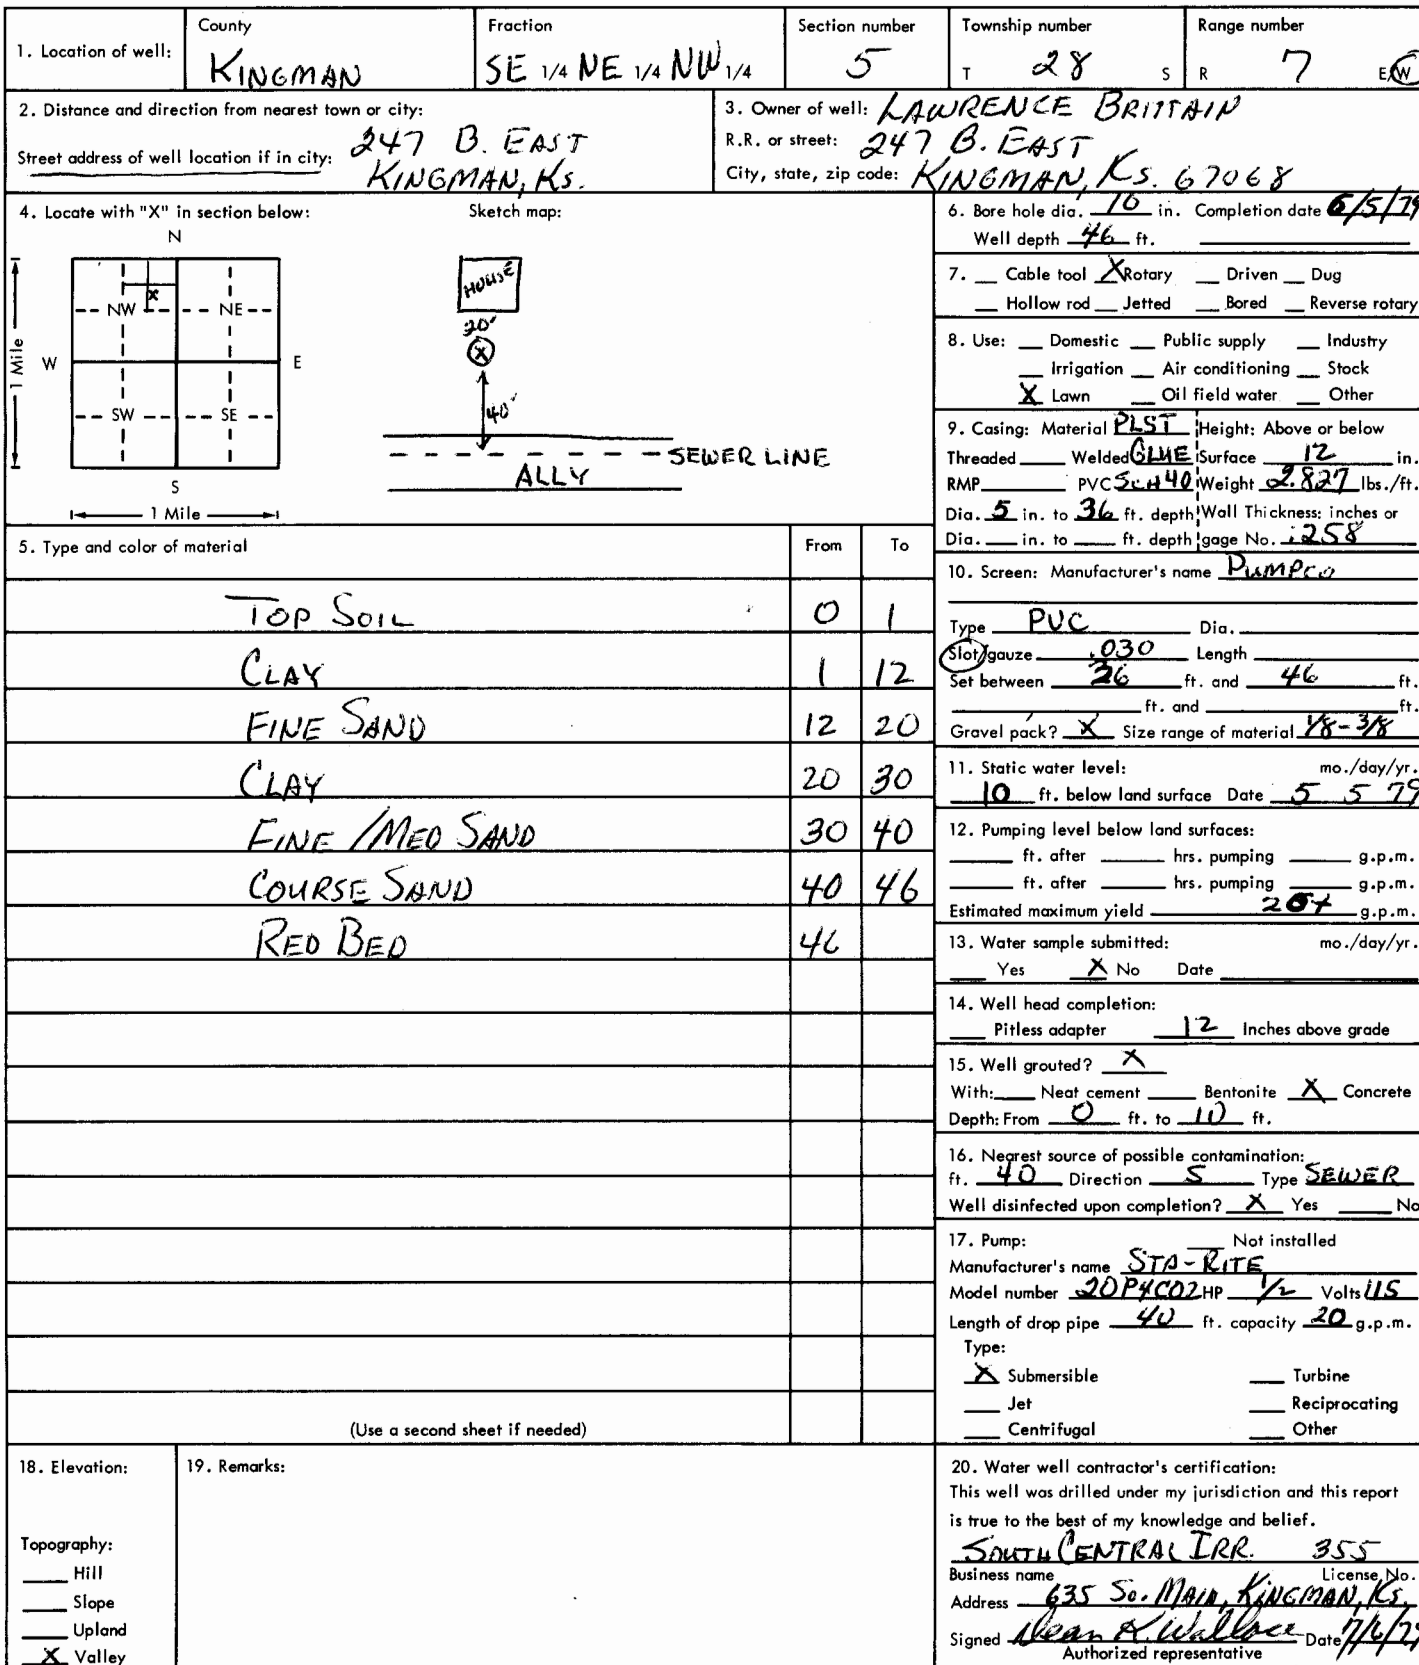 1. Location of well: County KINGMAN Fraction SE 1/4 NE 1/4 NW 1/4 Section number 5 Township number T 28 S Range number R 7 E/W
2. Distance and direction from nearest town or city:
Street address of well location if in city: 247 B. EAST
KINGMAN, KS.
3. Owner of well: LAWRENCE BRITTAIN
R.R. or street: 247 B. EAST
City, state, zip code: KINGMAN, KS. 67068
4. Locate with "X" in section below:
N
NW NE
X
W E
SW SE
S
1 Mile
1 Mile
Sketch map:
HOUSE
X
40'
SEWER LINE
ALLY
5. Type and color of material From To
TOP SOIL 0 1
CLAY 1 12
FINE SAND 12 20
CLAY 20 30
FINE /MED SAND 30 40
COURSE SAND 40 46
RED BED 46
(Use a second sheet if needed)
6. Bore hole dia. 10 in. Completion date 6/5/79
Well depth 46 ft.
7. Cable tool X Rotary Driven Dug
Hollow rod Jetted Bored Reverse rotary
8. Use: Domestic Public supply Industry
Irrigation Air conditioning Stock
X Lawn Oil field water Other
9. Casing: Material PLST Height: Above or below
Threaded Welded GLUE Surface 12 in.
RMP PVC SCH 40 Weight 2.827 lbs./ft.
Dia. 5 in. to 36 ft. depth Wall Thickness: inches or
Dia. in. to ft. depth gage No. .258
10. Screen: Manufacturer's name PUMPCO
Type PVC Dia.
Slot/gauze .030 Length
Set between ft. and 46 ft.
ft. and ft.
Gravel pack? X Size range of material 1/8 - 3/8
11. Static water level: mo./day/yr.
10 ft. below land surface Date 5 5 79
12. Pumping level below land surfaces:
ft. after hrs. pumping g.p.m.
ft. after hrs. pumping g.p.m.
Estimated maximum yield 20+ g.p.m.
13. Water sample submitted: mo./day/yr.
Yes X No Date
14. Well head completion:
Pitless adapter 12 Inches above grade
15. Well grouted? X
With: Neat cement Bentonite X Concrete
Depth: From 0 ft. to 10 ft.
16. Nearest source of possible contamination:
ft. 40 Direction S Type SEWER
Well disinfected upon completion? X Yes No
17. Pump: Not installed
Manufacturer's name STA-RITE
Model number 20P4C02 HP 1/2 Volts 115
Length of drop pipe 40 ft. capacity 20 g.p.m.
Type:
X Submersible Turbine
Jet Reciprocating
Centrifugal Other
18. Elevation:
Topography:
Hill
Slope
Upland
X Valley
19. Remarks:
20. Water well contractor's certification:
This well was drilled under my jurisdiction and this report
is true to the best of my knowledge and belief.
SOUTH CENTRAL IRR. 355
Business name License No.
Address 635 So. MAIN, KINGMAN, KS.
Signed Dean K. Wallace Date 7/6/79
Authorized representative